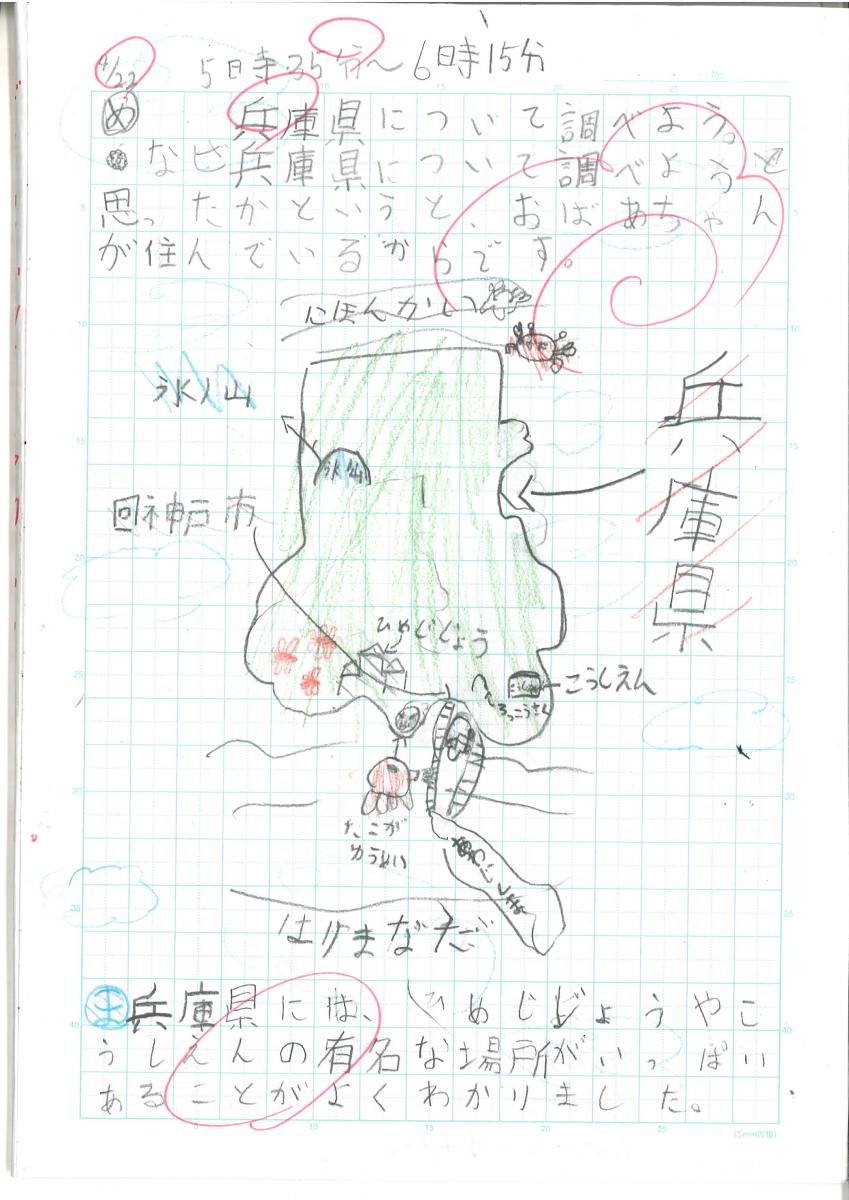 4/22 5日時35分〜6日時15分
め 兵庫県について調べよう。
なぜ兵庫県について調べようと
思ったかというと、おばあちゃん
が住んでいるからです。
にほんかい
氷ノ山
氷山
兵庫県
回神戸市
ひめじじょう
こうしえん
ろっこうさん
たこが
ゆうめい
あわじしま
はりまなだ
ま 兵庫県には、ひめじじょうやこ
うしえんの有名な場所がいっぱい
あることがよくわかりました。
5
10
15
20
25
30
35
40
No.
(5mm方眼)